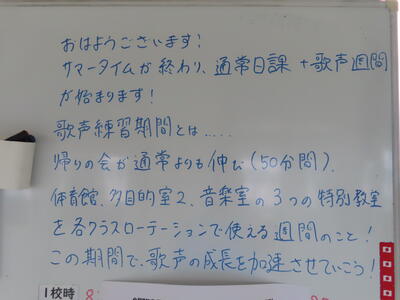 おはようございます!
サマータイムが終わり、通常日課+歌声週間
が始まります!
歌声練習期間とは.....
帰りの会が通常よりも伸び(50分間)、
体育館、多目的室2、音楽室の3つの特別教室
を各クラスローテーションで使える週間のこと!
この期間で、歌声の成長を加速させていこう!
1校時